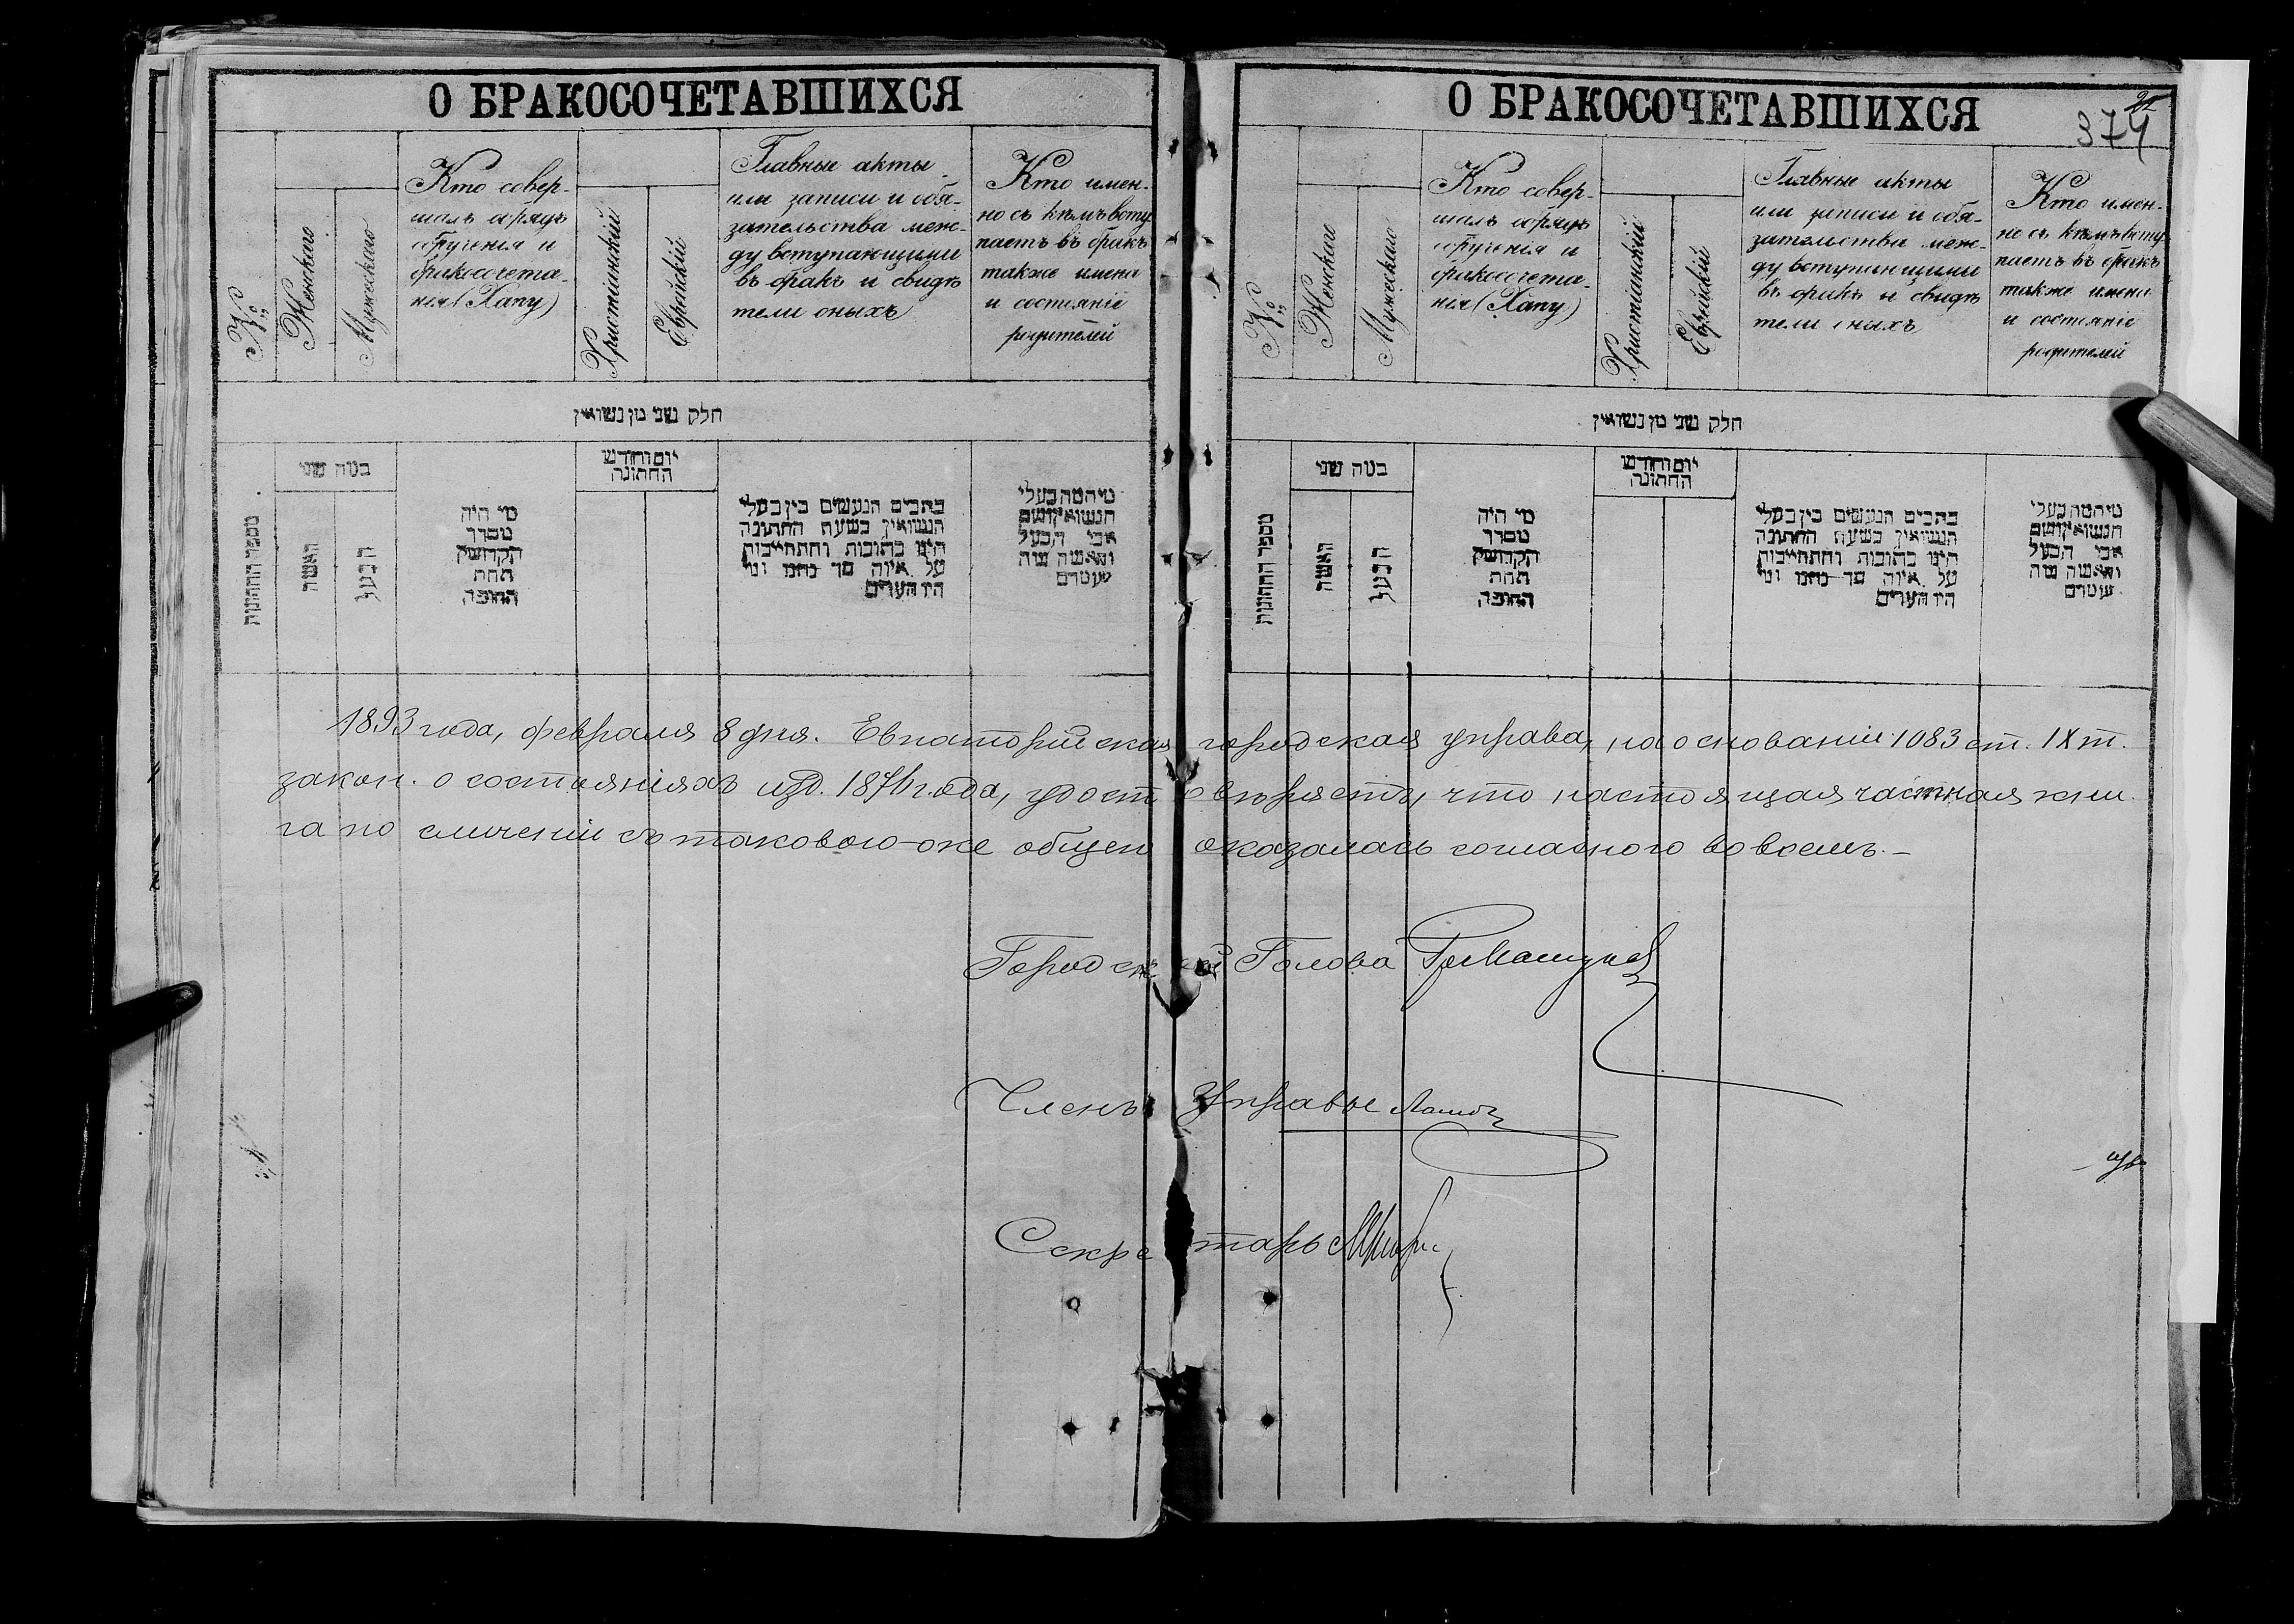 О БРАКОСОЧЕТАВШИХСЯ
№
Женскаго
Мужескаго
Кто совер-
шалъ обрядъ
обрученія и
бракосочета-
нія (Хапу)
Христіанскій
Еврейскій
Главные акты
или записи и обя-
зательства меж-
ду вступающими
въ бракъ и свидѣ
тели оныхъ
Кто имен-
но съ кѣмъ всту
паетъ въ бракъ
также имена
и состояніе
родителей
חלק שני מן נשואין
מספר החתונות
במה שני
האשה
הבעל
מי היה
מסדר
הקדושין
תחת
החופה
יום וחודש
החתונה
כתבים הנעשים בין בעלי
הנשואין בשעת החתונה
היינו כתובות והתחייבות
על איזה סך נתנו ומי
היו העדים
מי המה בעלי
הנשואין ושם
אבי הבעל
והאשה ומה
שמם
О БРАКОСОЧЕТАВШИХСЯ
374
№
Женскаго
Мужескаго
Кто совер-
шалъ обрядъ
обрученія и
бракосочета-
нія (Хапу)
Христіанскій
Еврейскій
Главные акты
или записи и обя-
зательства меж-
ду вступающими
въ бракъ и свидѣ
тели оныхъ
Кто имен-
но съ кѣмъ всту
паетъ въ бракъ
также имена
и состояніе
родителей
חלק שני מן נשואין
מספר החתונות
במה שני
האשה
הבעל
מי היה
מסדר
הקדושין
תחת
החופה
יום וחודש
החתונה
כתבים הנעשים בין בעלי
הנשואין בשעת החתונה
היינו כתובות והתחייבות
על איזה סך נתנו ומי
היו העדים
מי המה בעלי
הנשואין ושם
אבי הבעל
והאשה ומה
שמם
1893 года, февраля 8 дня. Евпаторійская городская управа, на основаніи 1083 ст. IX т.
закон. о состояніяхъ изд. 1876 года, удостовѣряетъ, что настоящая частная кни
га по сличеніи съ таковою-же общею оказалась согласною во всемъ.—
Городской Голова
Членъ Управы
Секретарь